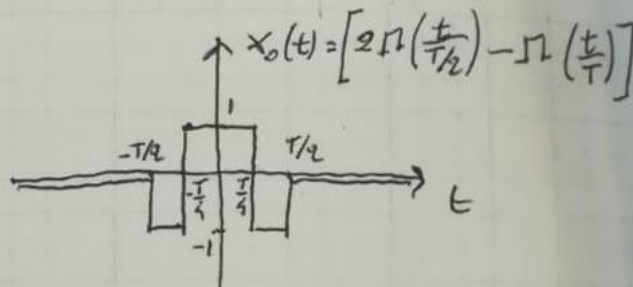 x₀(t) = [2Π(t/(T/2)) − Π(t/T)]
1
-T/2 T/2
-T/4 T/4
t
-1